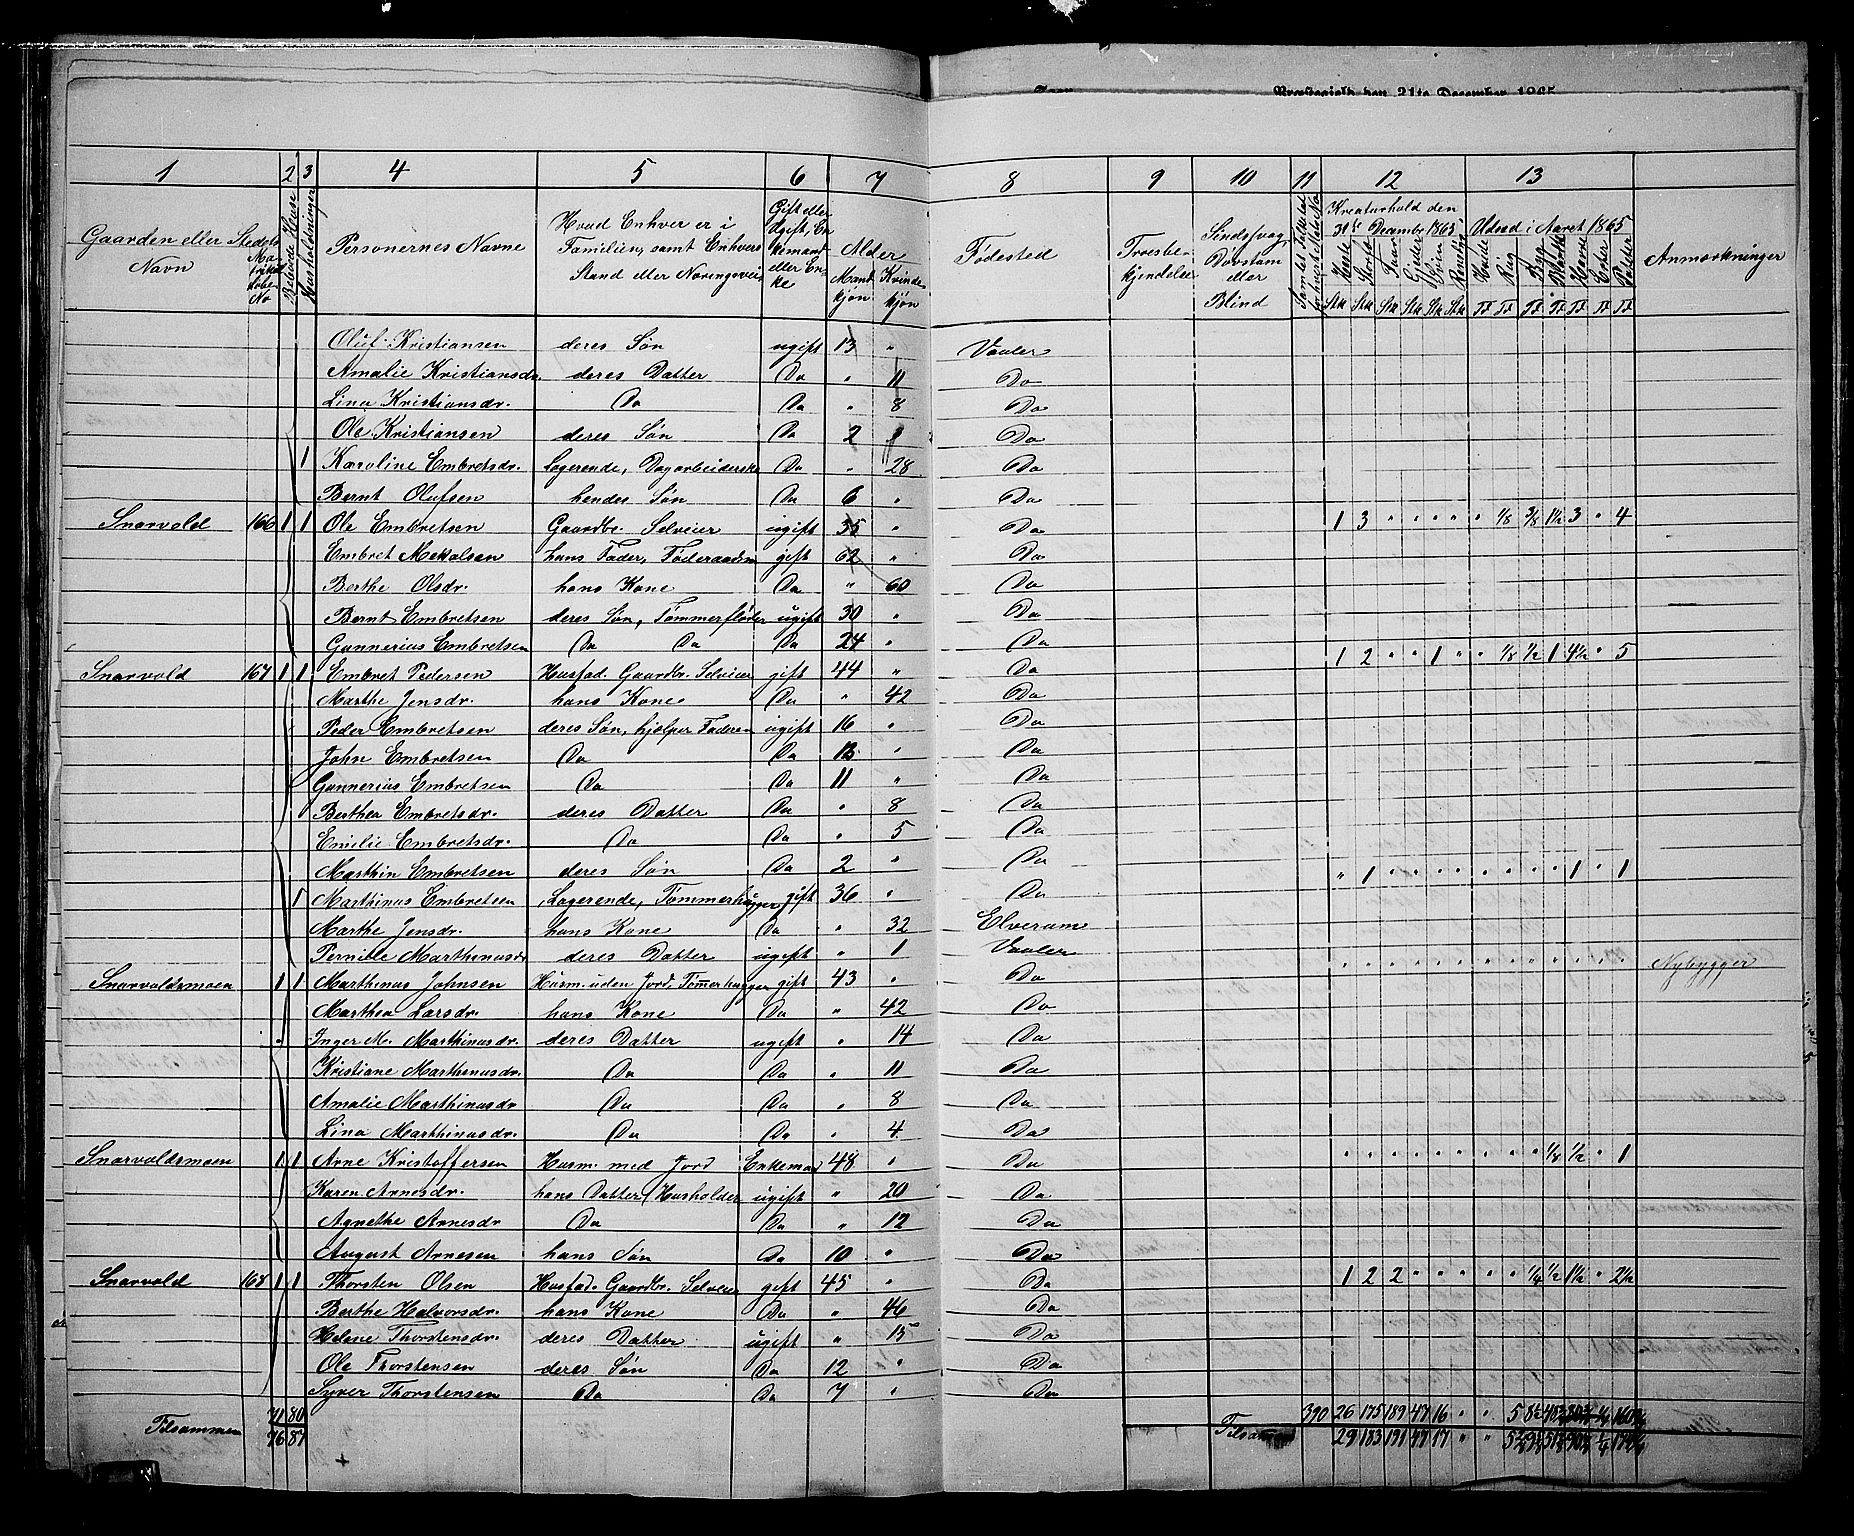 Præstegield den 31te December 1865
1 2 3 4 5 6 7 8 9 10 11 12 13
Gaarden eller Stedets Navn
Matrikul Løbe No
Beboede Huse
Husholdninger
Personernes Navne
Hvad Enhver er i Familien, samt Enhvers Stand eller Næringsvei
Gift eller Ugift, Enkemand eller Enke
Alder Mandkjøn Kvindekjøn
Fødested
Troesbekjendelse
Sindssvag Døvstum eller Blind
Kreaturhold den 31te December 1865
Udsæd i Aaret 1865
Anmærkninger
Oluf Kristiansen deres Søn ugift 13 " Vaaler
Amalie Kristiansdr. deres Datter Do " 11 Do
Lina Kristiansdr. Do Do " 8 Do
Ole Kristiansen deres Søn Do 2 Do
1 Karoline Embretsdr. Logerende, Dagarbeiderske Do " 28 Do
Bernt Olufsen hendes Søn Do 6 " Do
Snarvold 166 1 1 Ole Embretsen Gaardbr. Selveier ugift 35 " Do 1 3 " " " " " 1/8 3/8 1½ 3 " 4
Embret Mekalsen hans Fader, Føderaadsm gift 62 " Do
Berthe Olsdr. hans Kone Do " 60 Do
Bernt Embretsen deres Søn, Tømmerfløder ugift 30 " Do
Gunnerius Embretsen Do Do Do 24 " Do
Snarvold 167 1 1 Embret Pedersen Husfad. Gaardbr. Selveier gift 44 " Do 1 2 " " 1 " " 1/8 ½ 1 4½ " 5
Marthe Jensdr. hans Kone Do " 42 Do
Peder Embretsen deres Søn, hjelper Faderen ugift 16 " Do
John Embretsen Do Do 13 " Do
Gunnerius Embretsen Do Do 11 " Do
Berthea Embretsdr. deres Datter Do " 8 Do
Emilie Embretsdr. Do Do " 5 Do
Marthin Embretsen deres Søn Do 2 " Do
1 Marthinus Embretsen Logerende, Tømmerhugger gift 36 " Do " 1 " " " " " " " " 1 " 1
Marthe Jensdr. hans Kone Do " 32 Elverum
Pernille Marthinusdr deres Datter ugift " 1 Vaaler
Snarvoldsmoen 1 1 Marthinus Johnsen Husm. uden Jord. Tømerhugger gift 43 " Do " " " " " " " " " " " " " Nybygger
Marthea Larsdr. hans Kone Do " 42 Do
Inger M. Marthinusdr. deres Datter ugift " 14 Do
Kristiane Marthinusdr. Do Do " 11 Do
Amalie Marthinusdr Do Do " 8 Do
Lina Marthinusdr. Do Do " 4 Do
Snarvoldsmoen 1 1 Arne Kristoffersen Husm. med Jord Enkemad 48 " Do " " " " " " " " " 1/8 ½ " 1
Karen Arnesdr. hans Datter, Husholder ugift " 20 Do
Agnethe Arnesdr Do Do " 12 Do
August Arnesen hans Søn Do 10 " Do
Snarvold 168 1 1 Thorsten Olsen Husfad. Gaardbr. Selveier gift 45 " Do 1 2 2 " " " " " ¼ ½ 1½ " 2½
Berthe Halvorsdr. hans Kone Do " 46 Do
Helene Thorstensdr. deres Datter ugift " 15 Do
Ole Thorstensen deres Søn Do 12 " Do
Syver Thorstensen Do Do 7 " Do
71 80 390 26 175 189 47 16 " " 5
Tilsammen 76 87 Tilsammen 29 183 191 47 17 " "